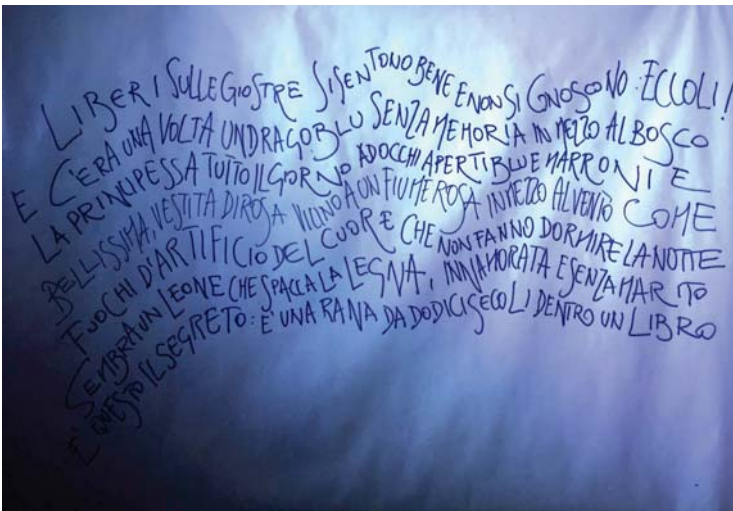 LIBERI SULLE GIOSTRE SI SENTONO BENE E NON SI CONOSCONO: ECCOLI!
E C'ERA UNA VOLTA UN DRAGO BLU SENZA MEMORIA IN MEZZO AL BOSCO
LA PRINCIPESSA TUTTO IL GIORNO AD OCCHI APERTI BLU E MARRONI E
BELLISSIMA, VESTITA DI ROSA VICINO A UN FIUME ROSA IN MEZZO AL VENTO COME
FUOCHI D'ARTIFICIO DEL CUORE CHE NON FANNO DORMIRE LA NOTTE
SEMBRA UN LEONE CHE SPACCA LA LEGNA, INNAMORATA E SENZA MARITO
E' QUESTO IL SEGRETO: E' UNA RANA DA DODICI SECOLI DENTRO UN LIBRO